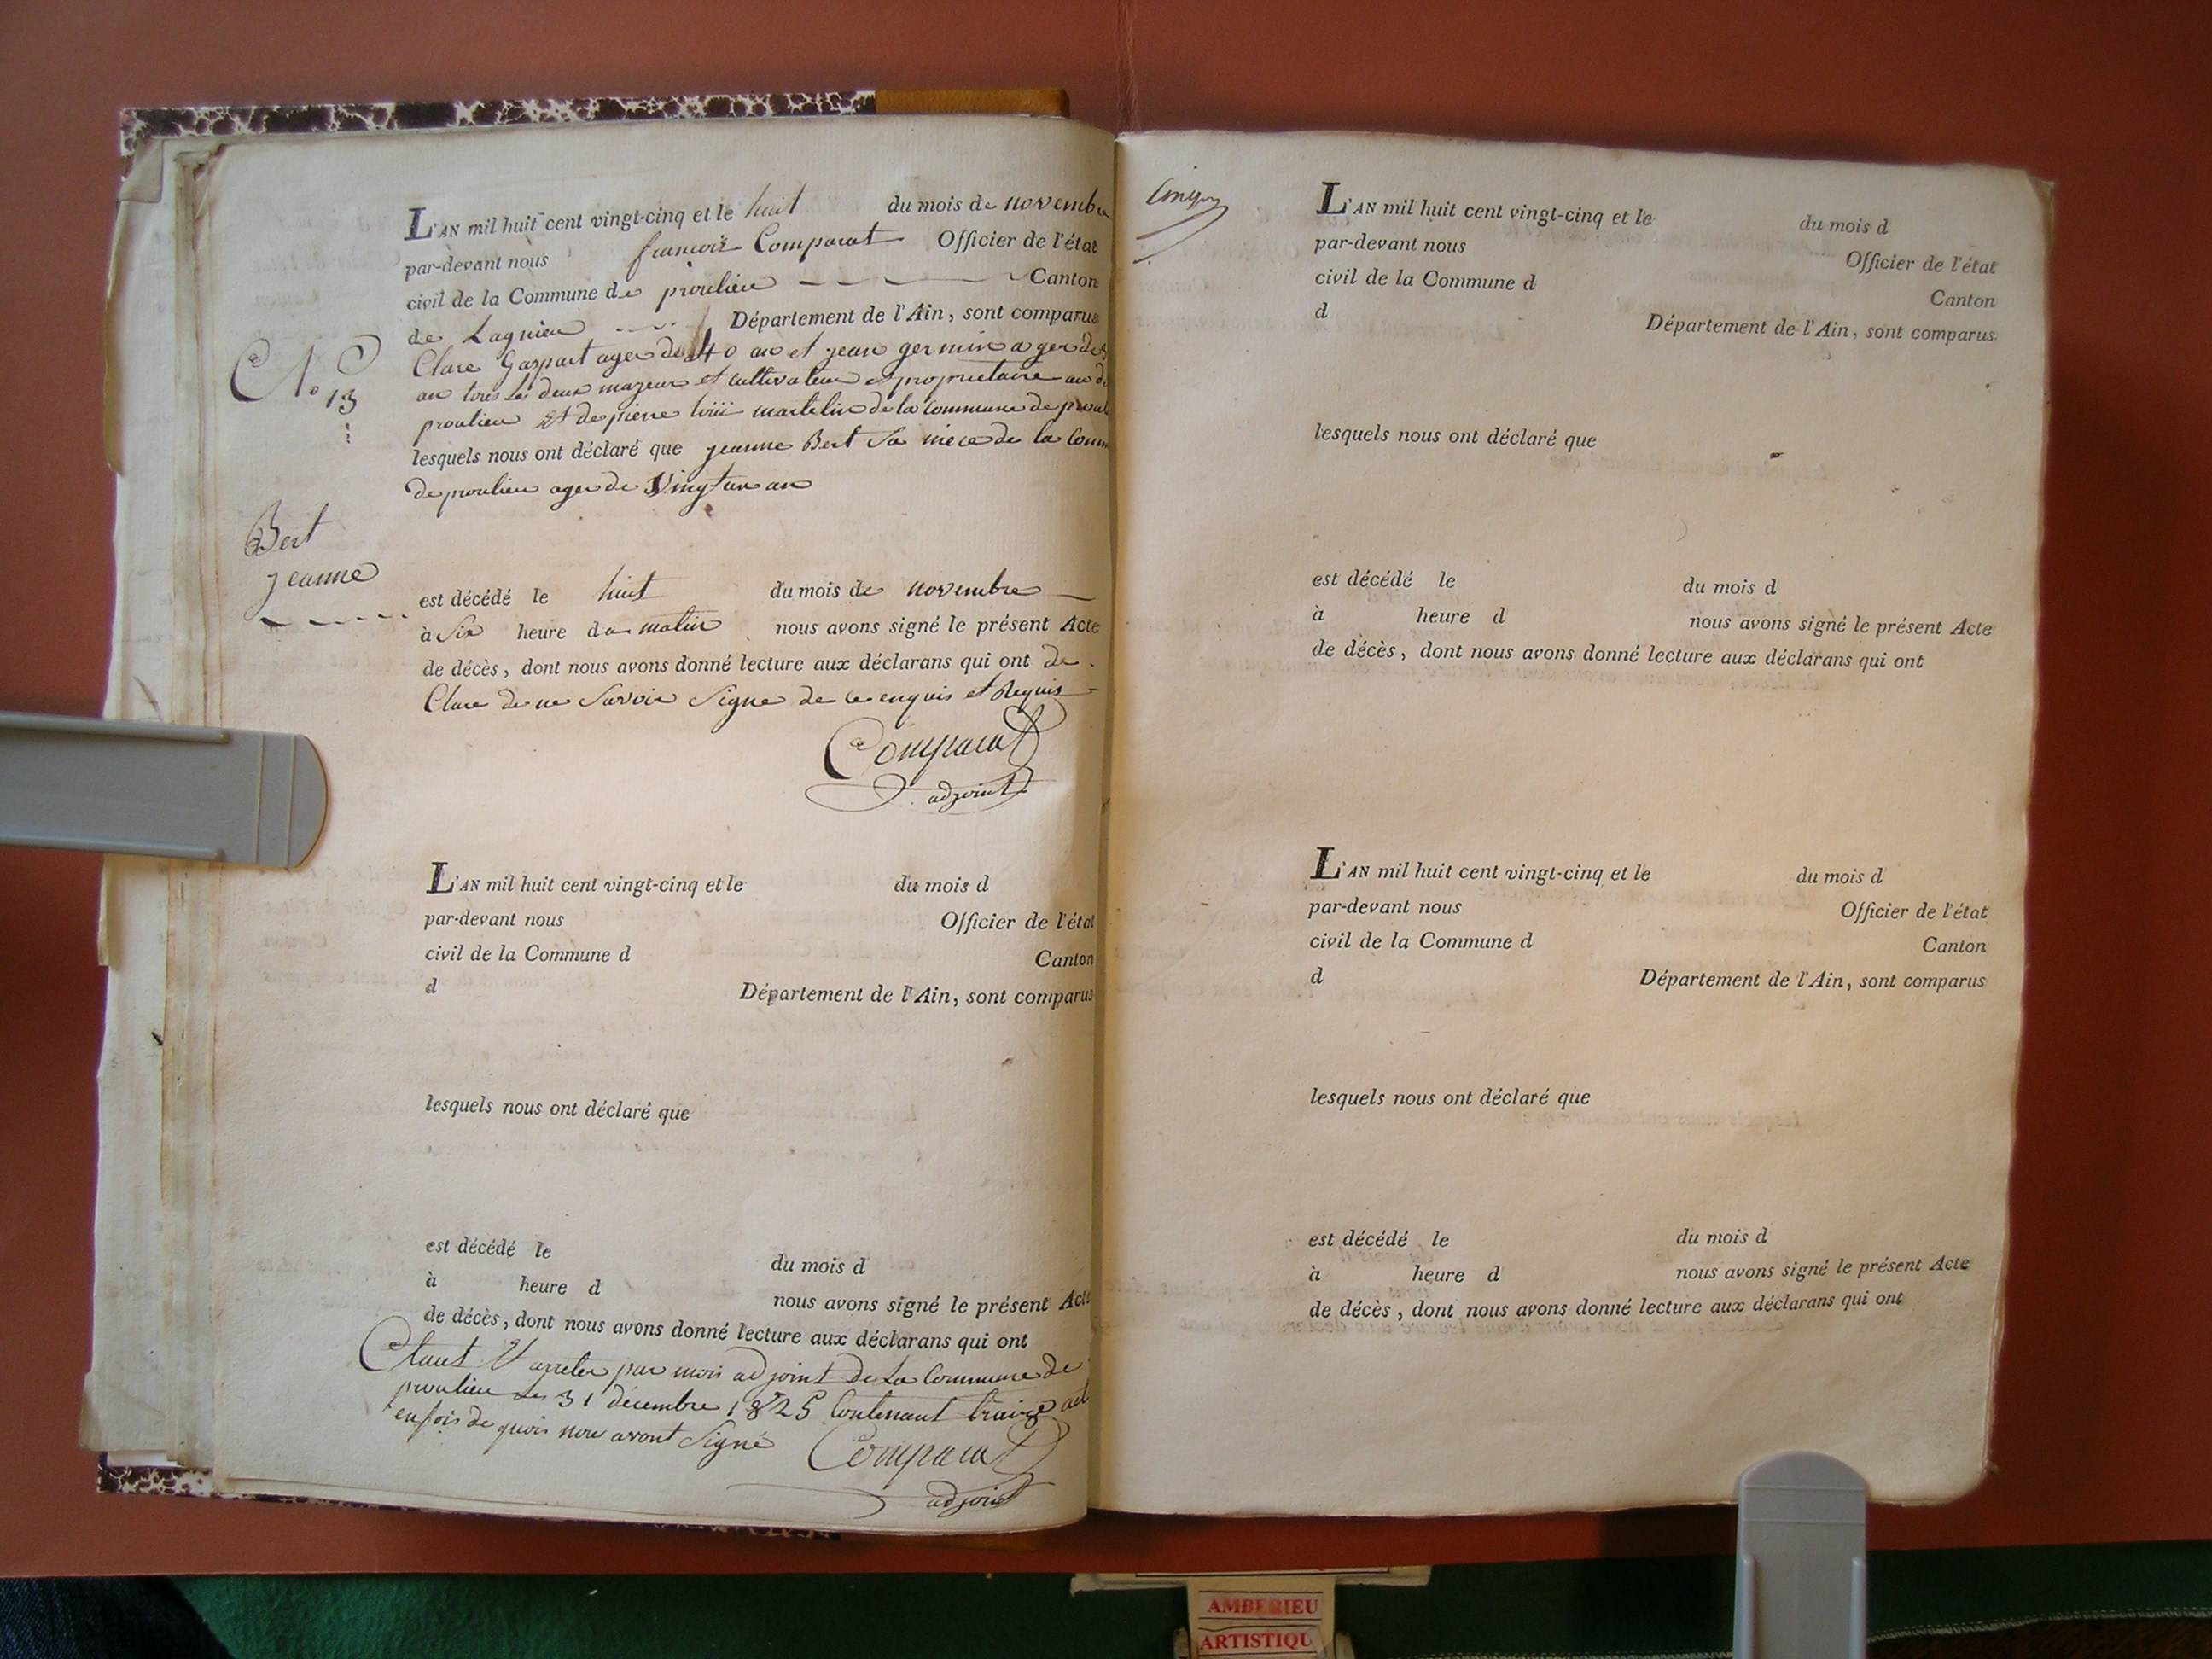 L'AN mil huit cent vingt-cinq et le huit du mois de novembre
par-devant nous francois Comparat Officier de l'état
civil de la Commune de proulieu Canton
de Lagnieu Département de l'Ain, sont comparus
Clare Gaspart ager de 40 an et jean germin ager de
an tous les deux mageur et cultivateur et proprietaire au
proulieu Et de pierre martelin de la commune de
lesquels nous ont déclaré que jeanne Bert Sa niece de la Comm
de proulieu ager de Vingt un an
N° 13
Bert
jeanne
est décédé le huit du mois de novembre
à Six heure du matin nous avons signé le présent Acte
de décès, dont nous avons donné lecture aux déclarans qui ont de
Clare de ne Savoir Signe de ce enquis et Requis
Comparat
adjoint
L'AN mil huit cent vingt-cinq et le du mois d
par-devant nous Officier de l'état
civil de la Commune d Canton
d Département de l'Ain, sont comparus
lesquels nous ont déclaré que
est décédé le du mois d
à heure d nous avons signé le présent Acte
de décès, dont nous avons donné lecture aux déclarans qui ont
Claut Et arreter par moi adjoint de La Commune de
proulieu Le 31 décembre 1825 Contenant treize act
en fois de quois nou avont Signé Comparat
adjoint
L'AN mil huit cent vingt-cinq et le du mois d
par-devant nous Officier de l'état
civil de la Commune d Canton
d Département de l'Ain, sont comparus
lesquels nous ont déclaré que
est décédé le du mois d
à heure d nous avons signé le présent Acte
de décès, dont nous avons donné lecture aux déclarans qui ont
L'AN mil huit cent vingt-cinq et le du mois d
par-devant nous Officier de l'état
civil de la Commune d Canton
d Département de l'Ain, sont comparus
lesquels nous ont déclaré que
est décédé le du mois d
à heure d nous avons signé le présent Acte
de décès, dont nous avons donné lecture aux déclarans qui ont
AMBERIEU
ARTISTIQU